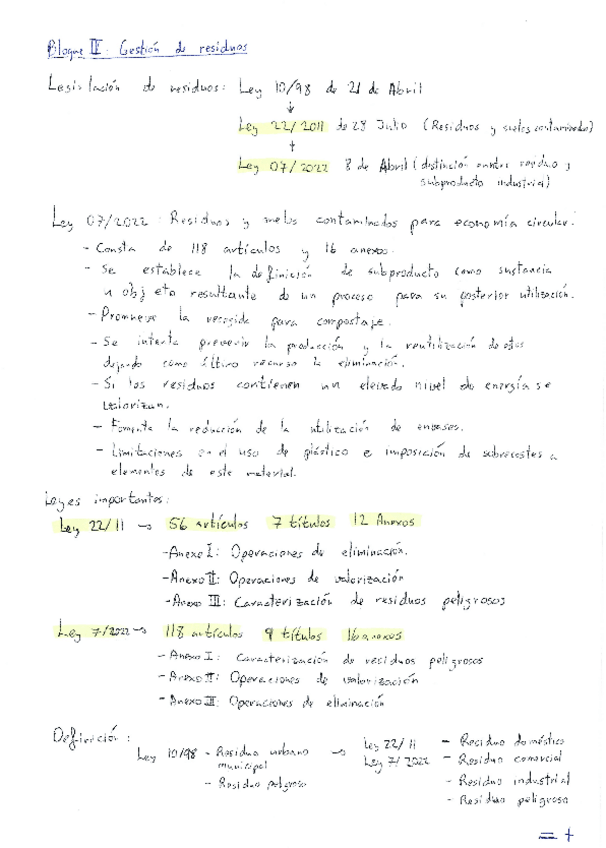 Bloque III: Gestión de residuos
Legislación de residuos: Ley 10/98 de 21 de Abril
↓
Ley 22/2011 de 28 Julio (Residuos y suelos contaminados)
↓
Ley 07/2022 8 de Abril (distinción entre residuo y
subproducto industrial)
Ley 07/2022: Residuos y suelos contaminados para economía circular:
- Consta de 118 artículos y 16 anexos.
- Se establece la definición de subproducto como sustancia
u objeto resultante de un proceso para su posterior utilización.
- Promueve la recogida para compostaje.
- Se intenta prevenir la producción y la reutilización de estos
dejando como último recurso la eliminación.
- Si los residuos contienen un elevado nivel de energía se
valorizan.
- Fomenta la reducción de la utilización de envases.
- Limitaciones en el uso de plástico e imposición de sobrecostes a
elementos de este material.
Leyes importantes:
Ley 22/11 → 56 artículos 7 títulos 12 Anexos
- Anexo I: Operaciones de eliminación.
- Anexo II: Operaciones de valorización
- Anexo III: Caracterización de residuos peligrosos
Ley 7/2022 → 118 artículos 9 títulos 16 anexos
- Anexo I: Caracterización de residuos peligrosos
- Anexo II: Operaciones de valorización
- Anexo III: Operaciones de eliminación
Definición:
Ley 10/98 - Residuo urbano municipal → Ley 22/11 Ley 7/2022 - Residuo doméstico
- Residuo peligroso - Residuo comercial
- Residuo industrial
- Residuo peligroso